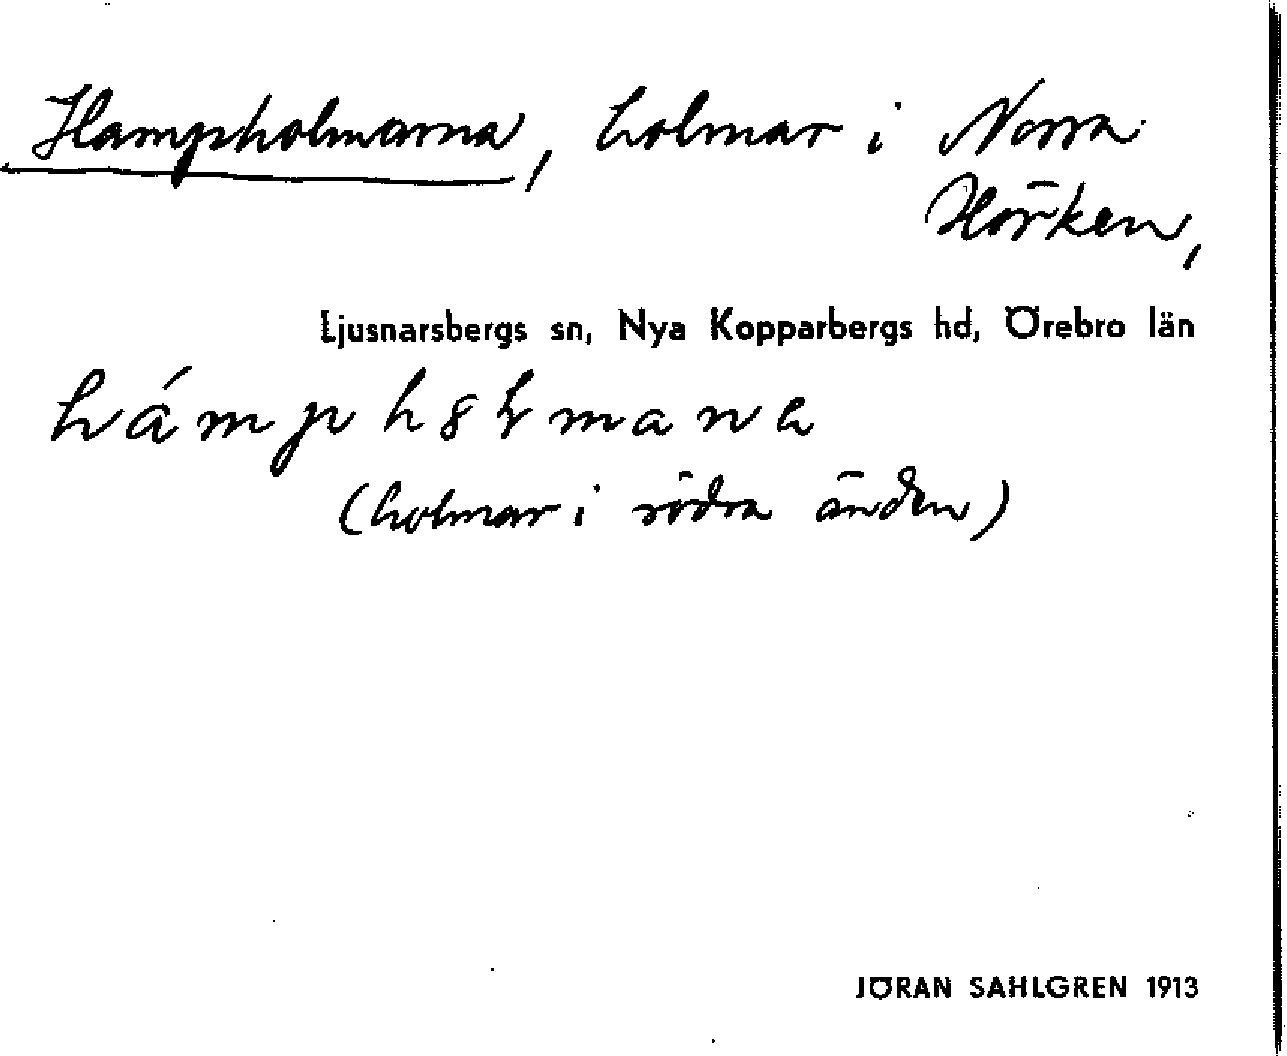 Hampholmarna, holmar i Norra
Hörken,
Ljusnarsbergs sn, Nya Kopparbergs hd, Örebro län
(holmar i södra änden)
JÖRAN SAHLGREN 1913